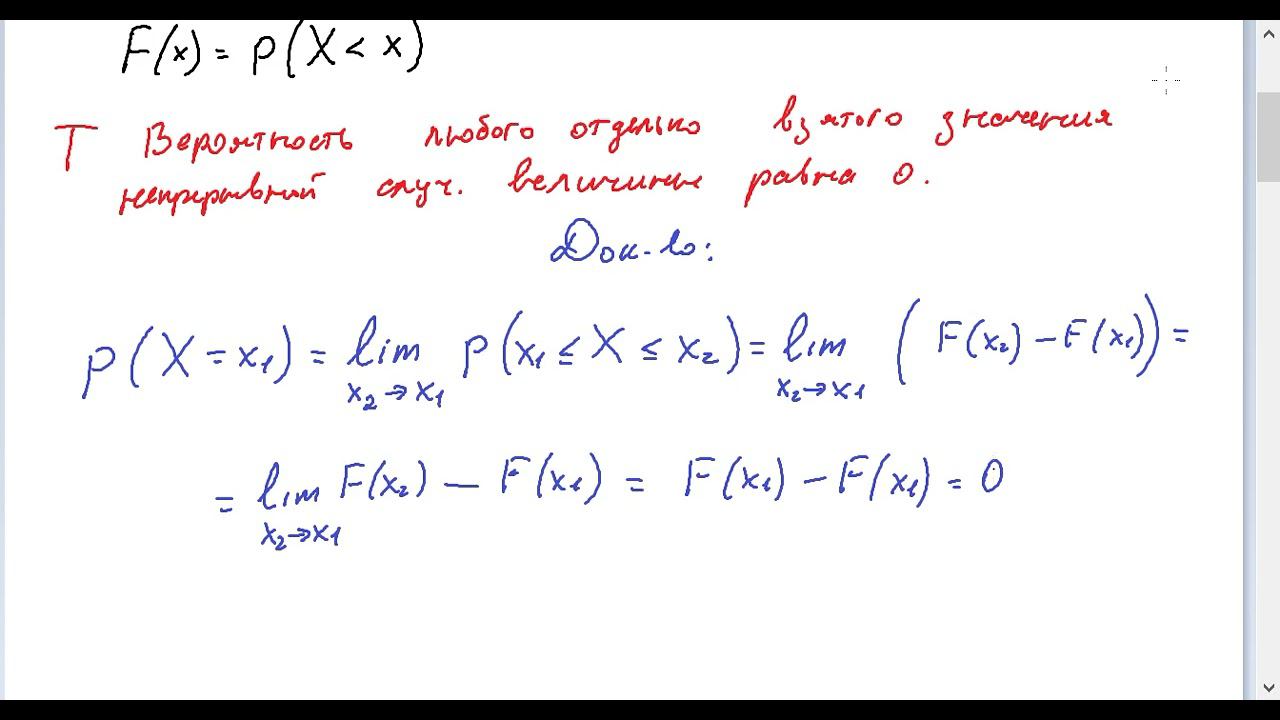 F(x) = p(X < x)
T Вероятность любого отдельно взятого значения
непрерывной случ. величины равна 0.
Док-во:
p(X = x₁) = lim p(x₁ ≤ X ≤ x₂) = lim (F(x₂) − F(x₁)) =
x₂→x₁ x₂→x₁
= lim F(x₂) − F(x₁) = F(x₁) − F(x₁) = 0
x₂→x₁